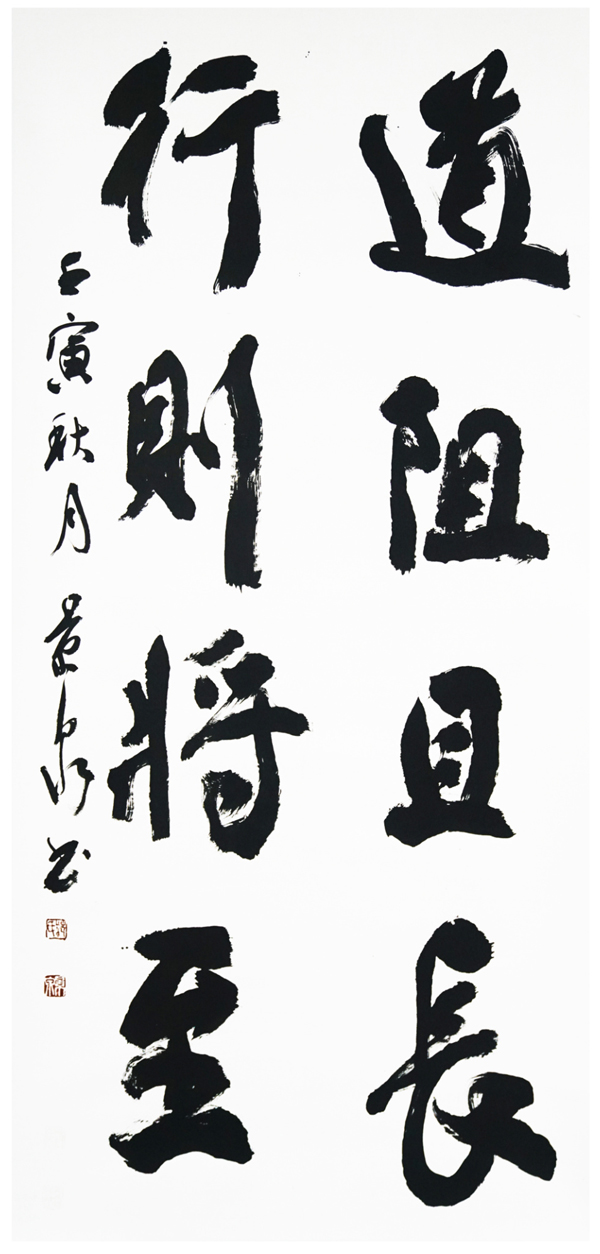 道阻且長
行則將至
壬寅秋月 書